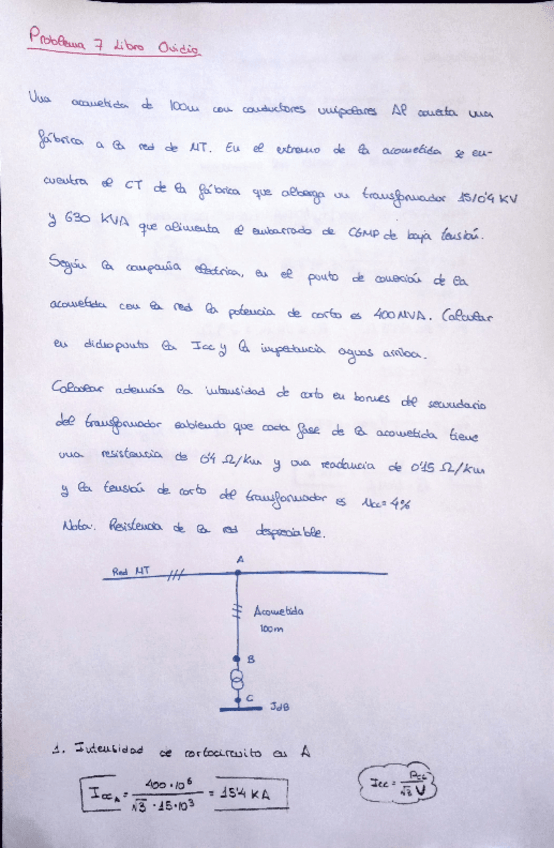 Problema 7 Libro Ovidio
Una acometida de 100m con conductores unipolares Al conecta una
fábrica a la red de MT. En el extremo de la acometida se en-
cuentra el CT de la fábrica que alberga un transformador 15/0'4 KV
y 630 KVA que alimenta el embarrado de CGMP de baja tensión.
Según la compañía eléctrica, en el punto de conexión de la
acometida con la red la potencia de corto es 400 MVA. Calcular
en dicho punto la Icc y la impetancia aguas arriba.
Calcular además la intensidad de corto en bornes del secundario
del transformador sabiendo que cada fase de la acometida tiene
una resistencia de 0'4 Ω/km y una readancia de 0'15 Ω/km
y la tensión de corto del transformador es Ucc = 4%
Nota: Resistencia de la red despreciable.
A
Red MT
Acometida
100m
B
C
JdB
1. Intensidad de cortocircuito en A
IccA = 400·10⁶ / √3 · 15·10³ = 15'4 KA
Icc = Pcc / √3 U